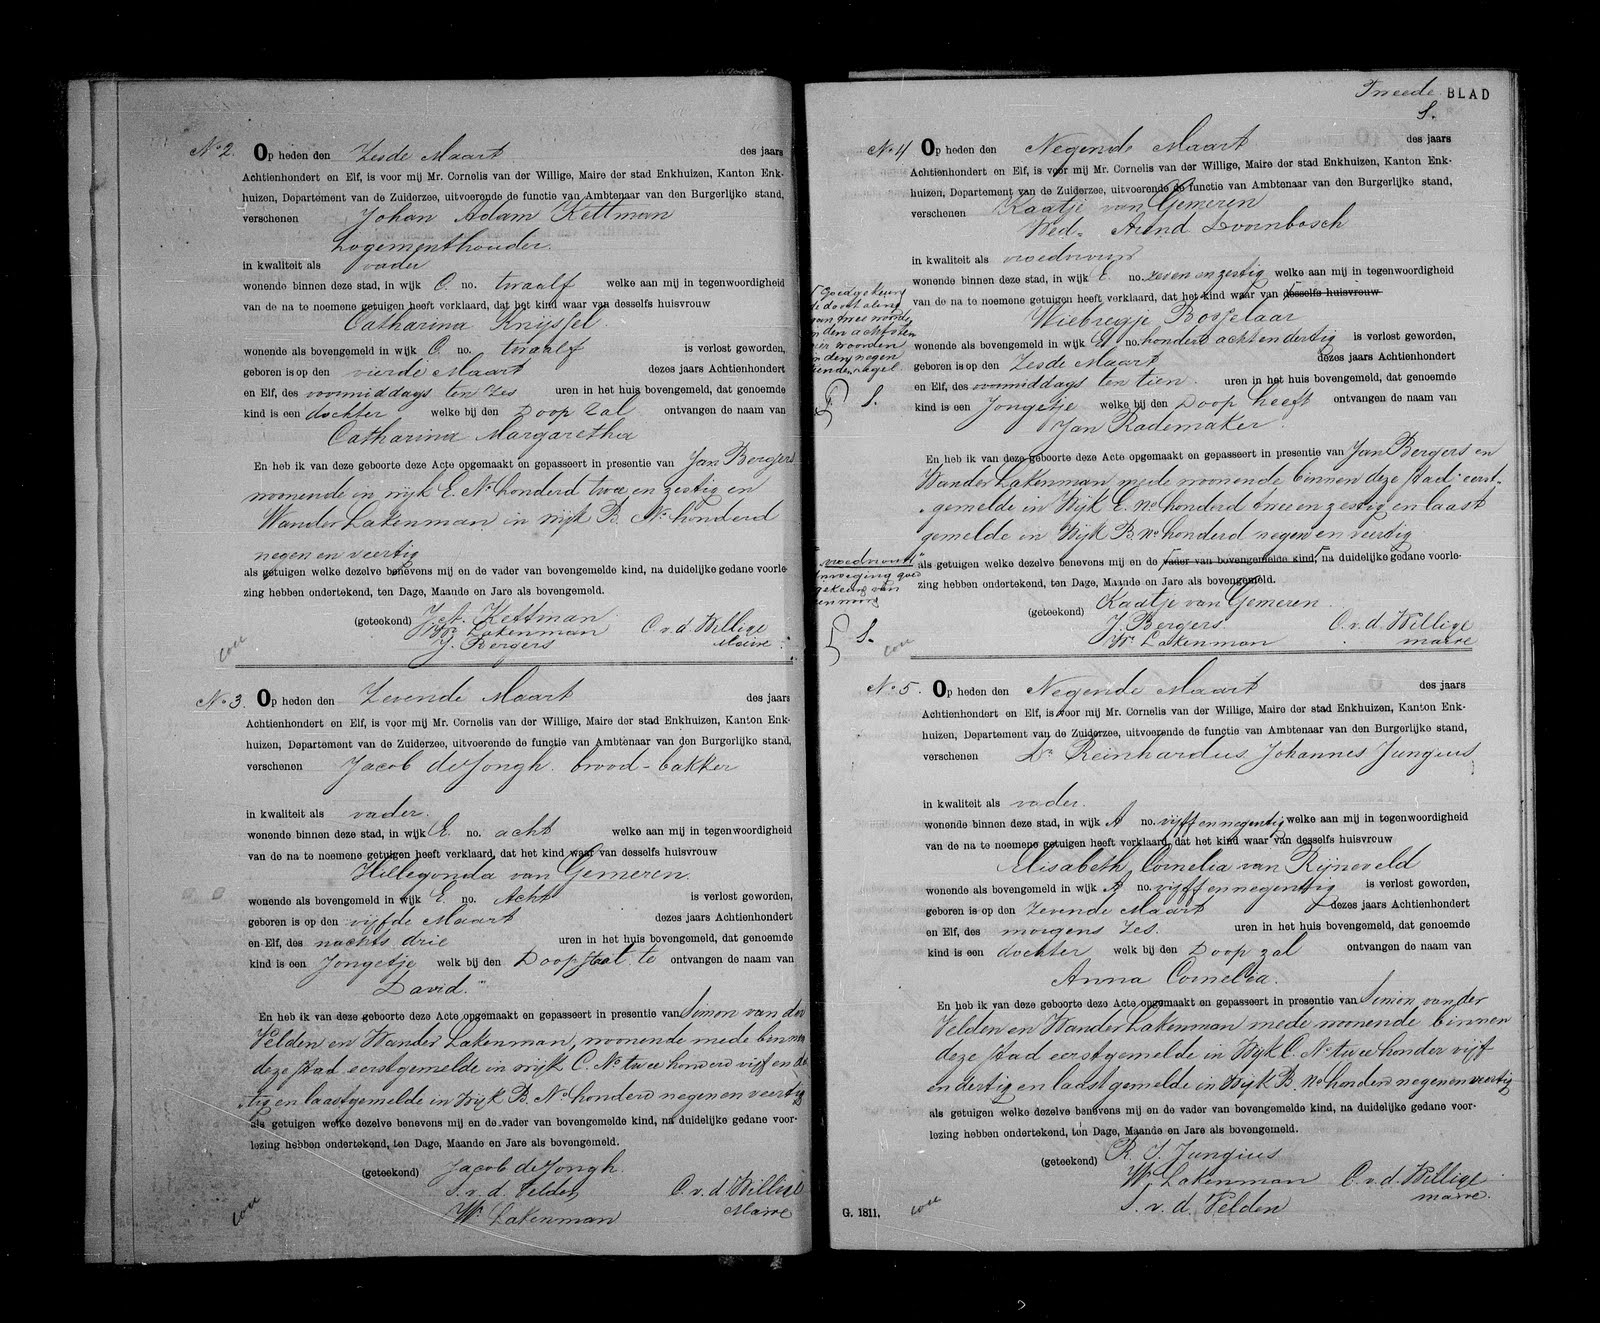 No 2. Op heden den Zesde Maart des jaars
Achtienhondert en Elf, is voor mij Mr. Cornelis van der Willige, Maire der stad Enkhuizen, Kanton Enk-
huizen, Departement van de Zuiderzee, uitvoerende de functie van Ambtenaar van den Burgerlijke stand,
verschenen Johan Adam Kettman
Logementhouder.
in kwaliteit als vader
wonende binnen deze stad, in wijk C. no. twaalf welke aan mij in tegenwoordigheid
van de na te noemene getuigen heeft verklaard, dat het kind waar van desselfs huisvrouw
Catharina Knijssel.
wonende als bovengemeld in wijk C. no. twaalf is verlost geworden,
geboren is op den vierde Maart dezes jaars Achtienhondert
en Elf, des voormiddags ten zes uren in het huis bovengemeld, dat genoemde
kind is een dochter welke bij den Doop zal ontvangen de naam van
Catharina Margaretha
En heb ik van deze geboorte deze Acte opgemaakt en gepasseert in presentie van Jan Bergers
woonende in wijk E. No honderd twee en zestig en
Wander Lakenman in wijk B. No honderd
negen en veertig
als getuigen welke dezelve benevens mij en de vader van bovengemelde kind, na duidelijke gedane voorle-
zing hebben ondertekend, ten Dage, Maande en Jare als bovengemeld.
(geteekend) J. A. Kettman
Wr Lakenman C. v. d. Willige
J. Bergers Maire
No 3. Op heden den Zevende Maart des jaars
Achtienhondert en Elf, is voor mij Mr. Cornelis van der Willige, Maire der stad Enkhuizen, Kanton Enk-
huizen, Departement van de Zuiderzee, uitvoerende de functie van Ambtenaar van den Burgerlijke stand,
verschenen Jacob de Jongh. brood-bakker
in kwaliteit als vader.
wonende binnen deze stad, in wijk E. no. acht welke aan mij in tegenwoordigheid
van de na te noemene getuigen heeft verklaard, dat het kind waar van desselfs huisvrouw
Hillegonda van Gemeren.
wonende als bovengemeld in wijk E. no. Acht is verlost geworden,
geboren is op den vijfde Maart dezes jaars Achtienhondert
en Elf, des nachts drie uren in het huis bovengemeld, dat genoemde
kind is een Jongetje welk bij den Doop staat te ontvangen de naam van
David."
En heb ik van deze geboorte deze Acte opgemaakt en gepasseert in presentie van Simon van der
Velden en Wander Lakenman, woonende mede binnen
deze stad eerstgemelde in wijk C. No twee honderd vijf en der
tig en laastgemelde in Wijk B. No honderd negen en veertig
als getuigen welke dezelve benevens mij en de vader van bovengemelde kind, na duidelijke gedane voor-
lezing hebben ondertekend, ten Dage, Maande en Jare als bovengemeld.
(geteekend) Jacob de Jongh.
S. v. d. Velden C. v. d. Willige
Wr Lakenman Maire
Tweede BLAD
S.
No 4 Op heden den Negende Maart des jaars
Achtienhondert en Elf, is voor mij Mr. Cornelis van der Willige, Maire der stad Enkhuizen, Kanton Enk-
huizen, Departement van de Zuiderzee, uitvoerende de functie van Ambtenaar van den Burgerlijke stand,
verschenen Kaatje van Gemeren
Wed. Arend Doornbosch
in kwaliteit als vroedvrouw
wonende binnen deze stad, in wijk E. no. zeven en zestig welke aan mij in tegenwoordigheid
van de na te noemene getuigen heeft verklaard, dat het kind waar van desselfs huisvrouw
Wiebregje Bosselaar
wonende als bovengemeld in wijk no. honderd acht en dertig is verlost geworden,
geboren is op den Zesde Maart dezes jaars Achtienhondert
en Elf, des voormiddags ten tien uren in het huis bovengemeld, dat genoemde
kind is een Jongetje welke bij den Doop heeft ontvangen de naam van
Jan Rademaker.
En heb ik van deze geboorte deze Acte opgemaakt en gepasseert in presentie van Jan Bergers en
Wander Lakenman mede woonende binnen deze stad eerst-
gemelde in Wijk E. no honderd twee en zestig en laast
gemelde in Wijk B. no honderd negen en veertig
als getuigen welke dezelve benevens mij en de vader van bovengemelde kind, na duidelijke gedane voorle-
zing hebben ondertekend, ten Dage, Maande en Jare als bovengemeld.
(geteekend) Kaatje van Gemeren
J. Bergers C. v. d. Willige
Wr Lakenman maire
No 5. Op heden den Negende Maart des jaars
Achtienhondert en Elf, is voor mij Mr. Cornelis van der Willige, Maire der stad Enkhuizen, Kanton Enk-
huizen, Departement van de Zuiderzee, uitvoerende de functie van Ambtenaar van den Burgerlijke stand,
verschenen Dr Reinhardus Johannes Jungius
in kwaliteit als vader.
wonende binnen deze stad, in wijk A no. vijff en negentig welke aan mij in tegenwoordigheid
van de na te noemene getuigen heeft verklaard, dat het kind waar van desselfs huisvrouw
Elisabeth Cornelia van Rijneveld
wonende als bovengemeld in wijk A no. vijff en negentig is verlost geworden,
geboren is op den Zevende Maart dezes jaars Achtienhondert
en Elf, des morgens Zes. uren in het huis bovengemeld, dat genoemde
kind is een dochter welk bij den Doop zal ontvangen de naam van
Anna Cornelia.
En heb ik van deze geboorte deze Acte opgemaakt en gepasseert in presentie van Simon van der
Velden en Wander Lakenman mede woonende binnen
deze stad eerstgemelde in Wijk C. No twee honder vijf
en dertig en laastgemelde in Wijk B. no honderd negen en veertig
als getuigen welke dezelve benevens mij en de vader van bovengemelde kind, na duidelijke gedane voor-
lezing hebben ondertekend, ten Dage, Maande en Jare als bovengemeld.
(geteekend) R. J. Jungius
Wr Lakenman C. v. d. Willige
S. v. d. Velden maire.
G. 1811.